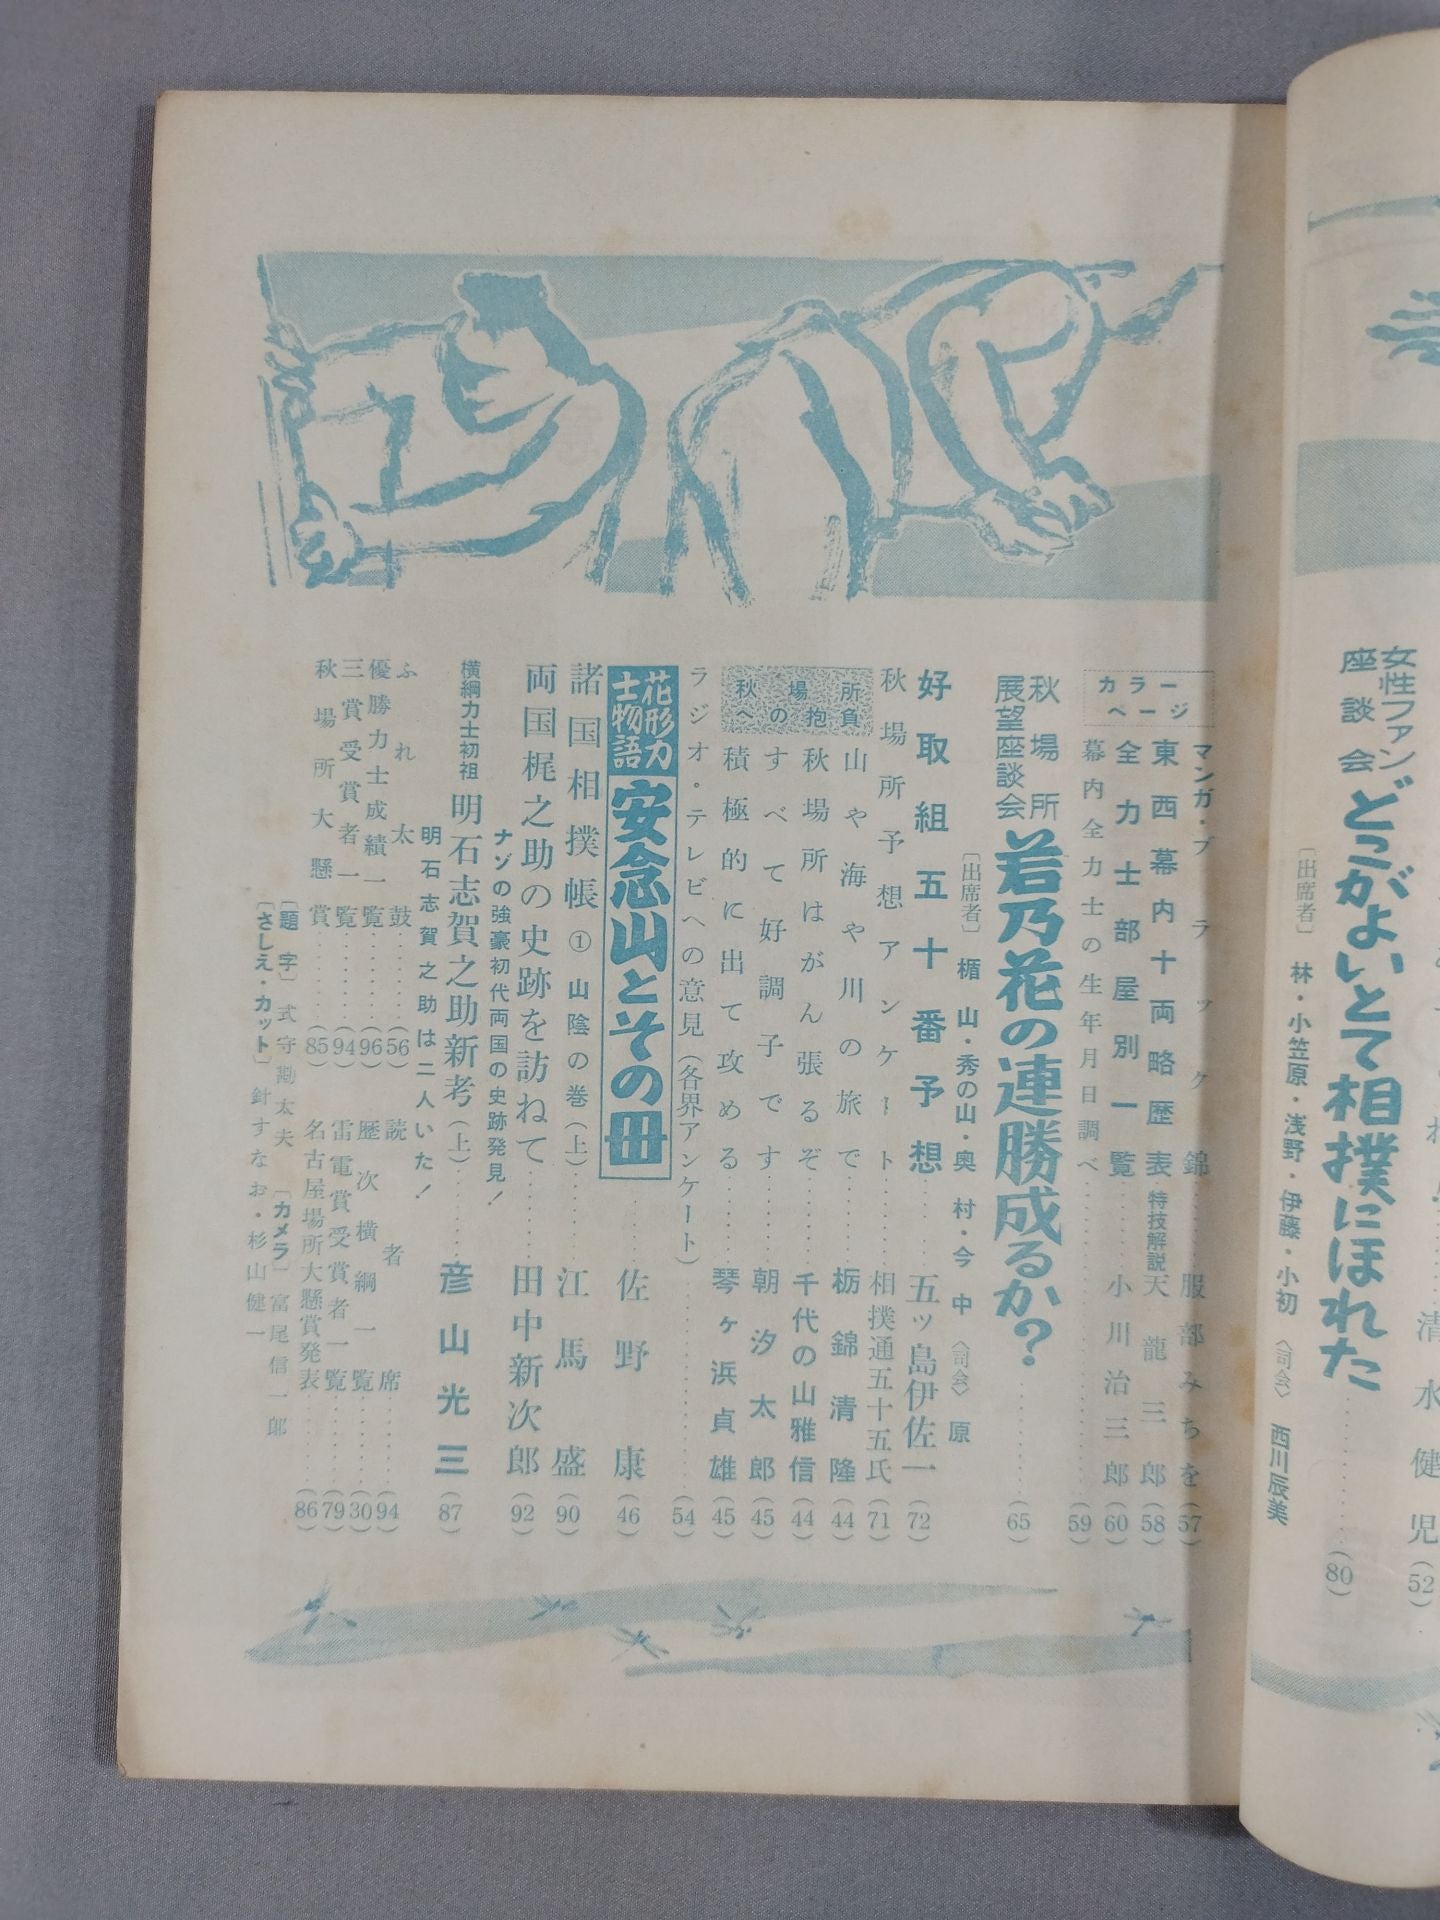 清水健児 (52)
女性ファン座談会 どこがよいとて相撲にほれた (80)
〔出席者〕 林・小笠原・浅野・伊藤・小初 〈司会〉 西川辰美
カラーページ
マンガ・ブラック錦 服部みちを (57)
東西幕内十両略歴表 特技解説 天龍三郎 (58)
全力士部屋別一覧 小川治三郎 (60)
幕内全力士の生年月日調べ (59)
秋場所展望座談会 若乃花の連勝成るか? (65)
〔出席者〕 楯山・秀の山・奥村・今中 〈司会〉 原
好取組五十番予想 五ッ島伊佐一 (72)
秋場所予想アンケート 相撲通五十五氏 (71)
秋場所への抱負
山や海や川の旅で 栃錦清隆 (44)
秋場所はがん張るぞ 千代の山雅信 (44)
すべて好調子です 朝汐太郎 (45)
積極的に出て攻める 琴ヶ浜貞雄 (45)
ラジオ・テレビへの意見(各界アンケート) (54)
花形力士物語 安念山とその冊 佐野康 (46)
諸国相撲帳 ① 山陰の巻(上) 江馬盛 (90)
両国梶之助の史跡を訪ねて 田中新次郎 (92)
ナゾの強豪初代両国の史跡発見!
横綱力士初祖 明石志賀之助新考(上) 彦山光三 (87)
明石志賀之助は二人いた!
ふれ太鼓 (56)
読者席 (94)
優勝力士成績一覧 (96)
歴次横綱一覧 (30)
三賞受賞者一覧 (94)
雷電賞受賞者一覧 (79)
秋場所大懸賞 (85)
名古屋場所大懸賞発表 (86)
〔題字〕 式守勘太夫 〔カメラ〕 富尾信一郎
〔さしえ・カット〕 針すなお・杉山健一